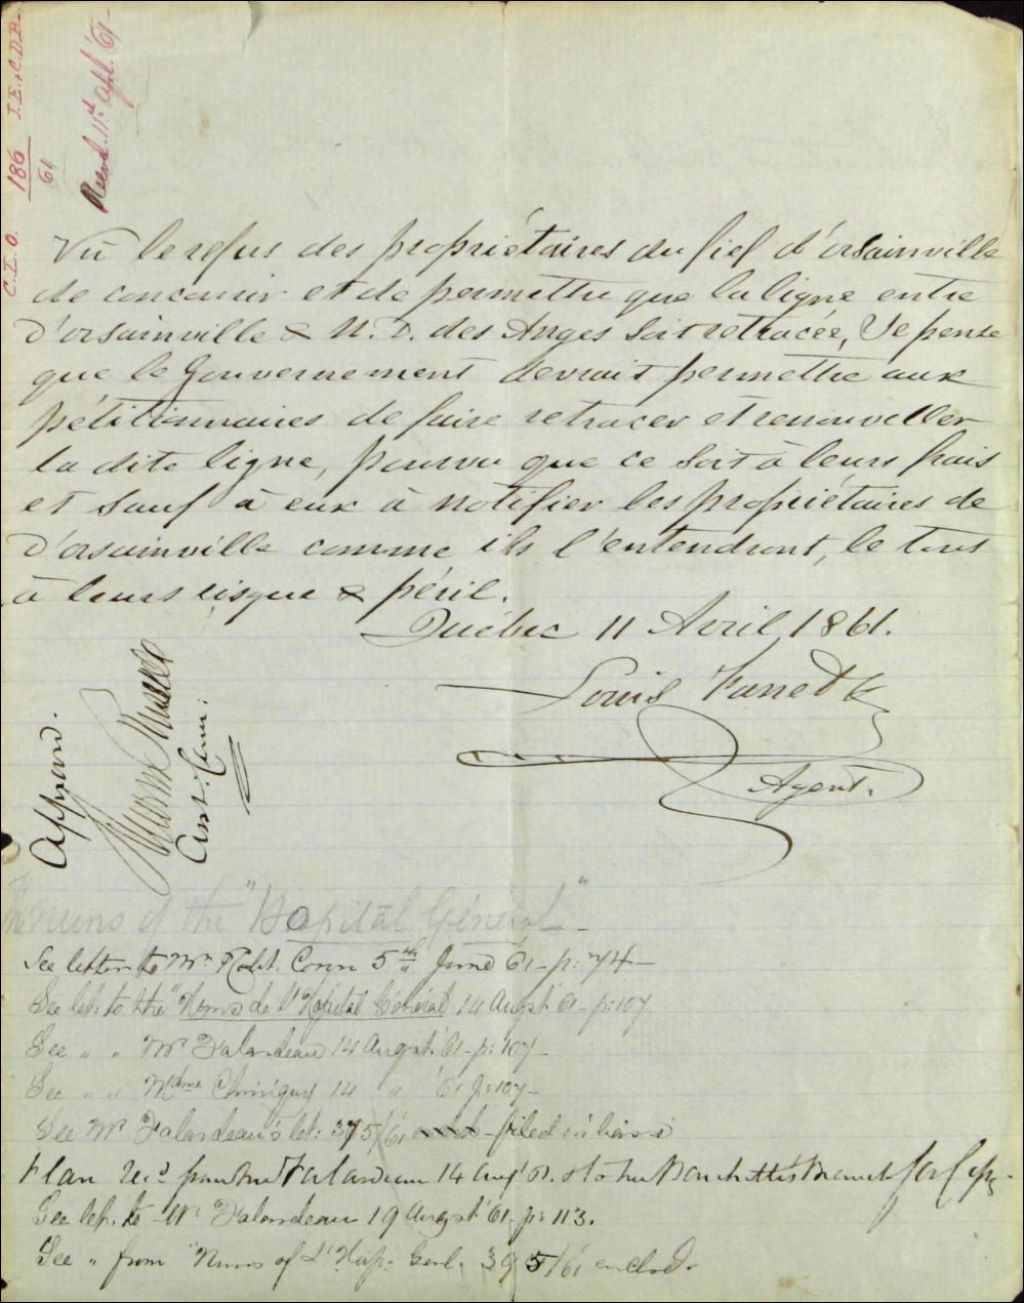 C.L.O. 186/61 J.E. & C.D.B.
Recd. 11th Apl. '61
Vû le refus des propriétaires du fief d'orsainville
de concourir et de permettre que la ligne entre
D'orsainville & N. D. des Anges soit retracée, Je pense
que le Gouvernement devrait permettre aux
pétitionnaires de faire retracer et renouveller
la dite ligne, pourvu que ce soit à leurs frais
et sauf à eux à notifier les propriétaires de
D'orsainville comme ils l'entendront, le tout
à leurs risque & péril.
Québec 11 Avril, 1861.
Louis
Agent.
Apprd.
Russell
Asst. Com:
The Nuns of the "Hopital Général"
See letter to Mr Robt. 5th June '61 - p: 74 -
See let: to the "Nuns de l'Hopital Général 14 Augst '61 - p: 107
See " " Mr Falardeau 14 Augst '61 - p: 107 -
See " " 14 " '61 p: 107 -
See Mr Falardeau's let: 375/61 - filed in
Plan recd from Mr Falardeau 14 Aug '61. & to
See let. to Mr Falardeau 19 Augst '61 - p: 113.
See " from Nuns of L'Hop: Genl. 395/61 enclosd.